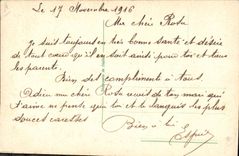 Le 17 Novembre 1916
Ma chère Rosa
Je suis toujours en très bonne santé et désire
de tout cœur qu'il en soit ainsi pour toi et tous
les parents.
Bien des compliments à tous.
Adieu ma chère Rosa reçoit de ton mari qui
t'aime ne pense que toi et te languis les plus
douces caresses
Bien à toi